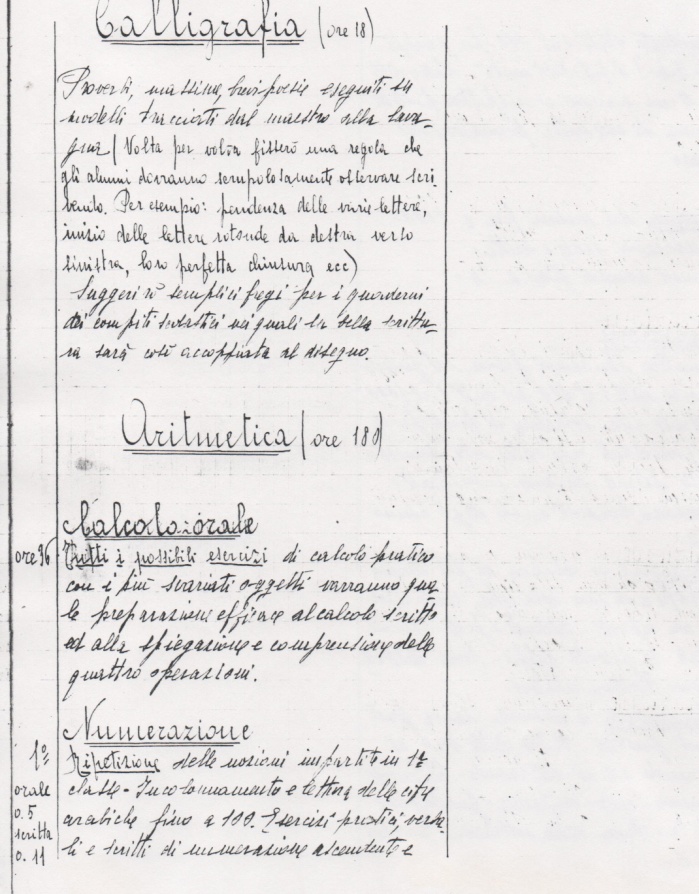 Calligrafia (ore 18)
Proverbi, massime, brevi poesie eseguiti su
modelli tracciati dal maestro alla lava-
gna (Volta per volta fisserò una regola che
gli alunni dovranno scrupolosamente osservare scri
vendo. Per esempio: pendenza delle varie lettere,
inizio delle lettere rotonde da destra verso
sinistra, loro perfetta chiusura ecc)
Suggerirò semplici fregi per i quaderni
dei compiti scolastici nei quali la bella scrittu-
ra sarà così accoppiata al disegno.
Aritmetica (ore 180)
Calcolo orale
ore 36 Tutti i possibili esercizi di calcolo pratico
con i più svariati oggetti varranno qua
le preparazione efficace al calcolo scritto
ed alla spiegazione e comprensione delle
quattro operazioni.
Numerazione
1º Ripetizione delle nozioni impartite in 1ª
orale classe - Incolonnamento e lettura delle cifre
o. 5 arabiche fino a 100. Esercizi pratici, verba
scritta li e scritti di numerazione ascendente e
o. 11